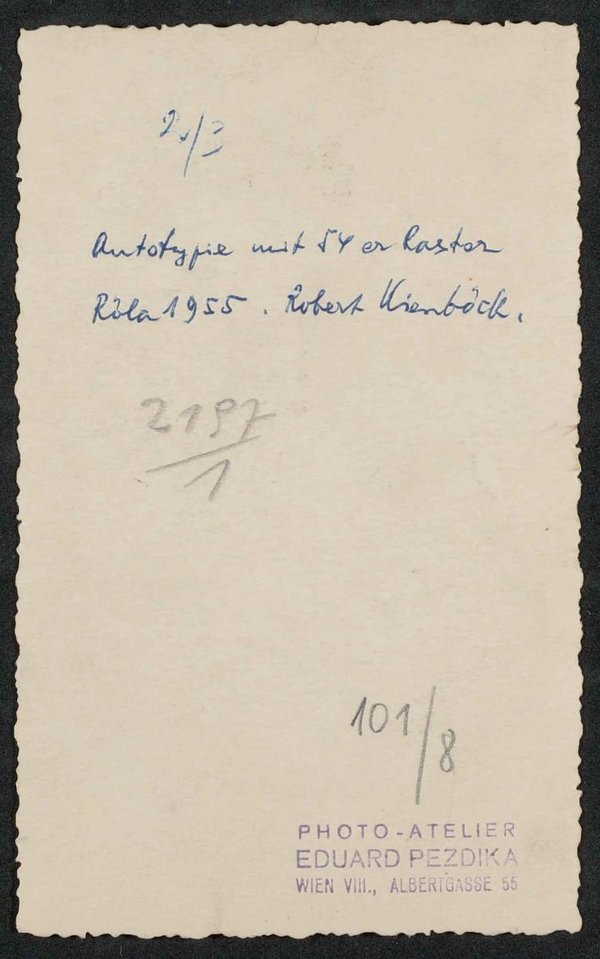 2/3
Autotypie mit 54er Raster
Röla 1955. Robert Kienböck.
2197/1
101/8
PHOTO-ATELIER
EDUARD PEZDIKA
WIEN VIII., ALBERTGASSE 55